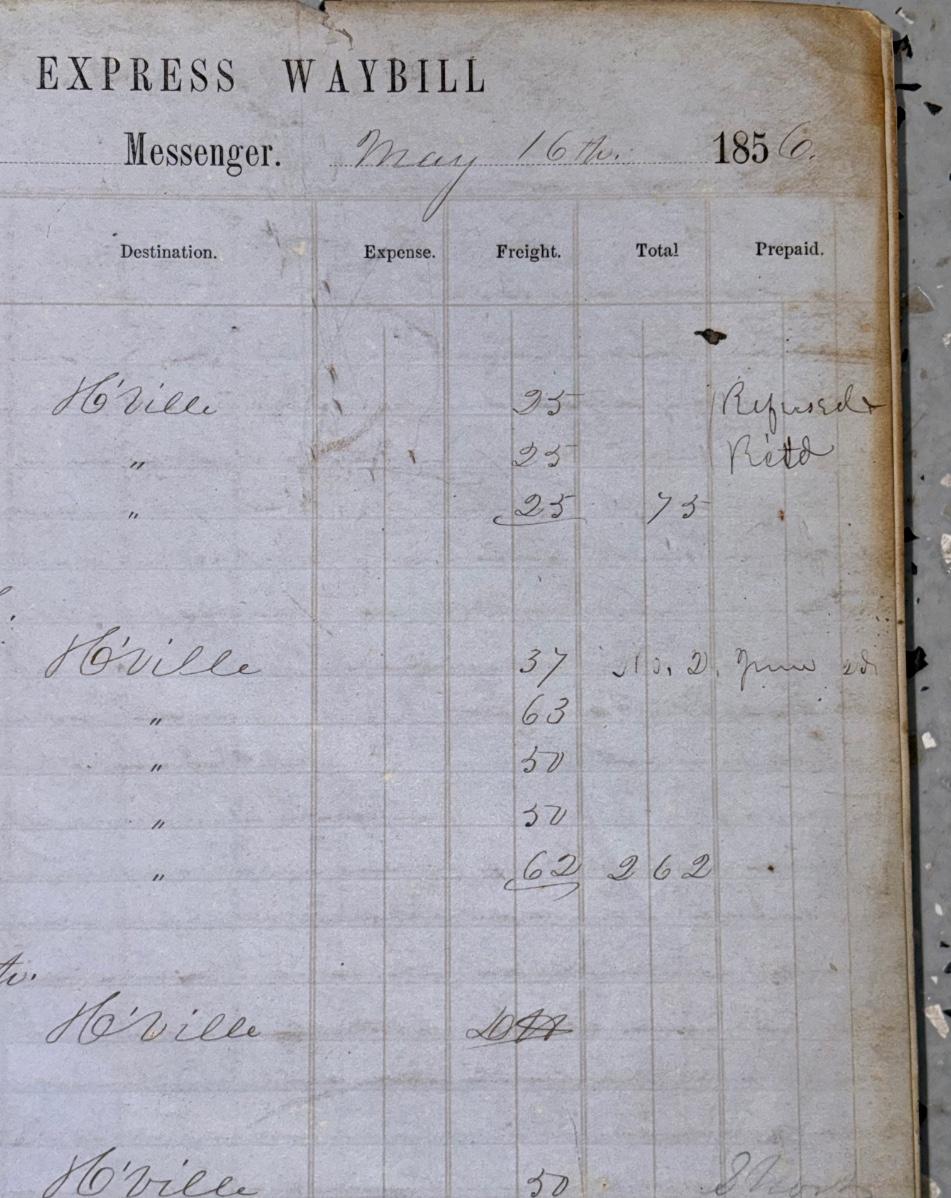 EXPRESS WAYBILL
Messenger. May 16th. 1856.
Destination. Expense. Freight. Total Prepaid.
H'Ville 25 Refused
" 25 Ret'd
" 25 75
H'Ville 37 No. 2. June
" 63
" 50
" 50
" 62 2 62
H'Ville
H'Ville 50